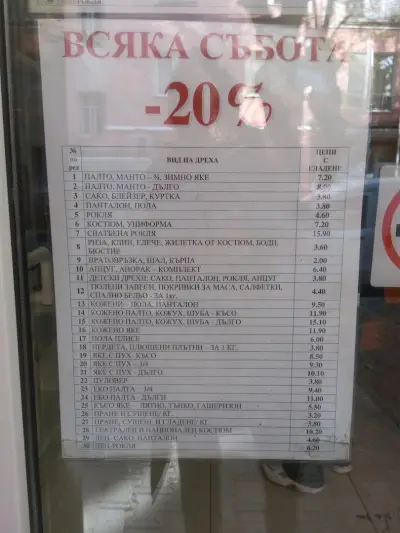 РОКЛЯ
ВСЯКА СЪБОТА
-20%
№ по ред ВИД НА ДРЕХА ЦЕНИ С ГЛАДЕНЕ
1 ПАЛТО, МАНТО – ¾, ЗИМНО ЯКЕ 7.20
2 ПАЛТО, МАНТО - ДЪЛГО 8.00
3 САКО, БЛЕЙЗЕР, КУРТКА 3.80
4 ПАНТАЛОН, ПОЛА 3.80
5 РОКЛЯ 4.60
6 КОСТЮМ, УНИФОРМА 7.20
7 СВАТБЕНА РОКЛЯ 15.90
8 РИЗА, КЛИН, ЕЛЕЧЕ, ЖИЛЕТКА ОТ КОСТЮМ, БОДИ,
БЮСТИЕ 3.60
9 ВРАТОВРЪЗКА, ШАЛ, КЪРПА 2.00
10 АНЦУГ, АНОРАК – КОМПЛЕКТ 6.40
11 ДЕТСКИ ДРЕХИ: САКО, ПАНТАЛОН, РОКЛЯ, АНЦУГ 3.80
12 ТЮЛЕНИ ЗАВЕСИ, ПОКРИВКИ ЗА МАСА, САЛФЕТКИ,
СПАЛНО БЕЛЬО - ЗА 1кг. 4.40
13 КОЖЕНИ – ПОЛА, ПАНТАЛОН 9.50
14 КОЖЕНО ПАЛТО, КОЖУХ, ШУБА - КЪСО 11.90
15 КОЖЕНО ПАЛТО, КОЖУХ, ШУБА - ДЪЛГО 15.10
16 КОЖЕНО ЯКЕ 11.90
17 ПОЛА ПЛИСЕ 6.00
18 ПЕРДЕТА, ПЛЮШЕНИ ПЛЪТНИ – ЗА 1 КГ. 3.80
19 ЯКЕ С ПУХ- КЪСО 8.50
20 ЯКЕ С ПУХ – 3/4 9.30
21 ЯКЕ С ПУХ - ДЪЛГО 10.10
22 ПУЛОВЕР 3.80
23 ЕКО ПАЛТА - 3/4 9.40
24 ЕКО ПАЛТА - ДЪЛГИ 11.00
25 КЪСО ЯКЕ – ЛЯТНО, ТЪНКО, ГАБЕРИЗОН 5.50
26 ПРАНЕ И СУШЕНЕ/ КГ. 3.20
27 ПРАНЕ, СУШЕНЕ И ГЛАДЕНЕ/ КГ. 3.80
28 ТЕАТРАЛЕН И НАЦИОНАЛЕН КОСТЮМ 10.20
29 ЛЕН- САКО, ПАНТАЛОН 4.60
30 ЛЕН-РОКЛЯ 6.20